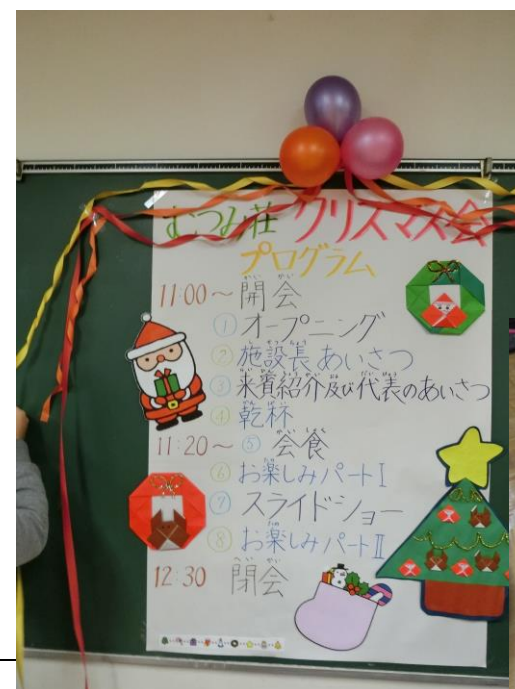 むつみ荘 クリスマス会
プログラム
11:00~開会
①オープニング
②施設長あいさつ
③来賓紹介及び代表のあいさつ
④乾杯
11:20~⑤会食
⑥お楽しみパートⅠ
⑦スライドショー
⑧お楽しみパートⅡ
12:30 閉会